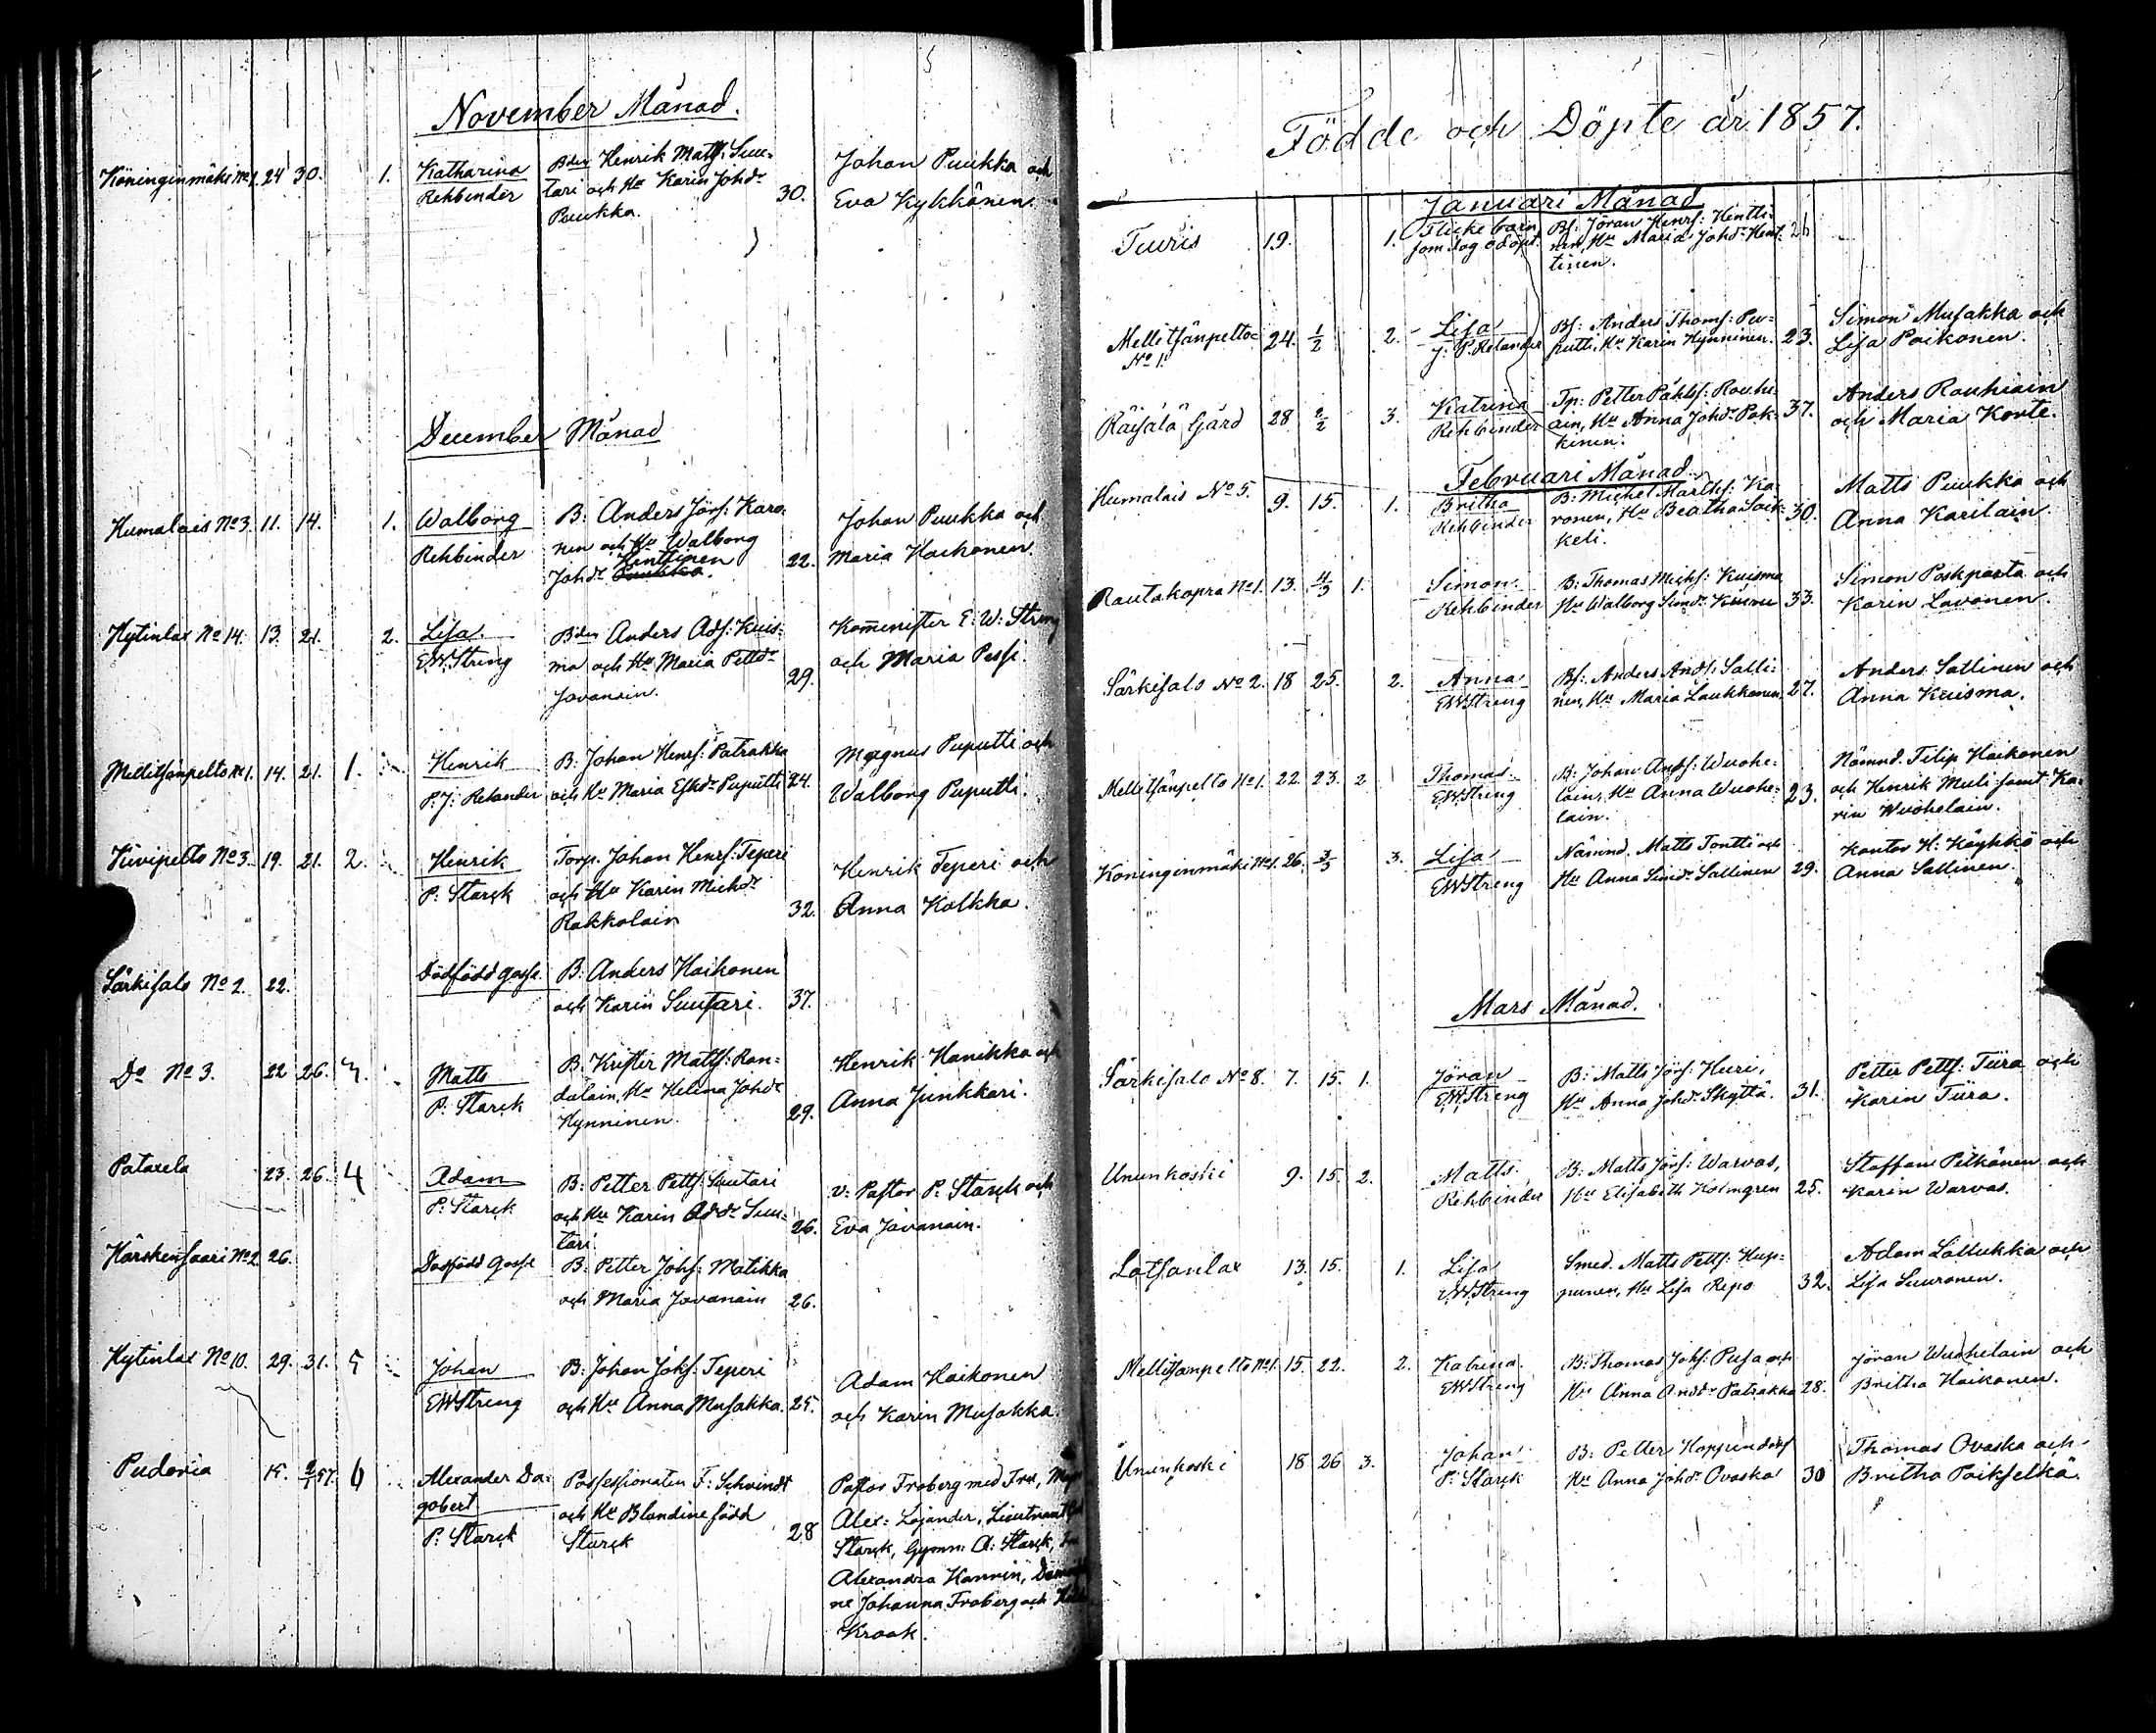 November Månad.
Köninginmäki No 1. 24 30. 1. Katharina Bden Henrik Matts: Suu- Johan Puukka och
Rehbinder tari och Hu Karin Johdr 30. Eva Kykkänen.
Puukka.
December Månad
Humalais No 3. 11. 14. 1. Walborg B: Anders Jörs: Karo- Johan Puukka och
Rehbinder nen och Hu Walborg Maria Haikonen
Johdr Henttinen 22.
Hytinlax No 14. 13. 21. 2. Lisa. Bden Anders Ads: Kuis- Kommenister E. W: Streng
EWStreng ma och Hu Maria Pettdr 29. och Maria Pesse.
Javanain.
Mellitsänpelto No 1. 14. 21. 1. Henrik B. Johan Henrs: Patrakka Magnus Puputti och
P. J: Relander och Hu Maria Eskdr Puputti 24. Walborg Puputti.
Kivipelto No 3. 19. 21. 2. Henrik Torp. Johan Henrs: Teperi Henrik Teperi och
P: Starck och Hu Karin Michdr 32. Anna Kolkka.
Rakkolain
Särkisalo No 2. 22. Dödfödd gosse. B: Anders Haikonen
och Karin Suutari. 37.
Do No 3. 22 26. 3. Matts B. Krister Matts: Ran- Henrik Hanikka och
P: Starck dalain, Hu Helena Johdr 29. Anna Junkkari.
Hynninen.
Patarela 23. 26. 4 Adam B: Petter Petts: Suutari v: Pastor P: Starck och
P: Starck och Hu Karin Addr Suu- 26. Eva Javanain.
tari.
Härskensaari No 2 26. Dödfödd Gosse B: Petter Johs: Matikka
och Maria Javanain 26.
Hytinlax No 10. 29. 31. 5 Johan B: Johan Johs: Teperi Adam Haikonen
EWStreng och Hu Anna Musakka. 25. och Karin Musakka.
Pudoria 15. 2/1 57. 6 Alexander Da- Possessionaten F: Schvindt Pastor Froberg med Fru,
gobert och Hu Blandine född Alex: Lojander, Lieutnant
P: Starck Starck 28 Starck, Gymn: A: Starck,
Alexandra Hannin,
ne Johanna Froberg och
Krook.
Födde och Döpte år 1857.
Januari Månad
Tiuris 19. 1. Flickebarn Bs: Jöran Henrs: Hentti- 21
som dog odöpt. nen, Hu Maria Johdr Hent-
tinen.
Mellitsänpelto 24. 1/2 2. Lisa Bs: Anders Thoms: Pu- Simon Musakka och
No 1. J. P. Relander putti, Hu Karin Hynninen. 23. Lisa Paikonen.
Räisälä Gård 28 2/2 3. Katrina Tp: Petter Påhls: Rauhi- Anders Rauhiain
Rehbinder ain, Hu Anna Johdr Pak- 37. och Maria Korte.
kinen.
Februari Månad.
Humalais No 5. 9. 15. 1. Britha B: Michel Marths: Ka- Matts Puukka och
Rehbinder ronen, Hu Beatha Säk- 30. Anna Karilain.
keli.
Rautakopra No 1. 13. 4/3 1. Simon B: Thomas Michs: Kuisma Simon Poskparta och
Rehbinder Hu Walborg Simdr Kiuru 33. Karin Lavonen.
Särkisalo No 2. 18 25. 2. Anna Bs: Anders Ands: Salli- Anders Sallinen och
EWStreng nen, Hu Maria Laukkanen. 27. Anna Kuisma.
Mellitsänpelto No 1. 22. 23. 2 Thomas B: Johan Ands: Wuohe- Nämnd. Filip Haikonen
EWStreng lain, Hu Anna Wuohe- 23. och Henrik Muli samt Ka-
lain. rin Wuohelain.
Köninginmäki No 1. 26. 3/3 3. Lisa Nämnd. Matts Tontti och Kantor H: Käyhkö och
EWStreng Hu Anna Simdr Sallinen 29. Anna Sallinen.
Mars Månad.
Särkisalo No 8. 7. 15. 1. Jöran B: Matts Jörs: Huri, Petter Petts: Tiira och
EWStreng Hu Anna Johdr Skyttä. 31. Karin Tiira.
Ununkoski 9. 15. 2. Matts. B: Matts Jörs: Warvas, Staffan Pitkänen och
Rehbinder Hu Elisabeth Holmgren 25. Karin Warvas.
Lotsanlax 13. 15. 1. Lisa Smed. Matts Petts: Hup- Adam Lallukka och
EWStreng punen, Hu Lisa Repo 32. Lisa Suuronen.
Mellitsänpelto No 1. 15. 22. 2. Katrina. B: Thomas Johs: Pusa och Jöran Wuohelain och
EWStreng Hu Anna Anddr Patrakka 28. Britha Haikonen.
Ununkoski 18 26 3. Johan B: Petter Hoppendorf Thomas Ovaska och
P: Starck Hu Anna Johdr Ovaska 30 Britha Paikselkä.